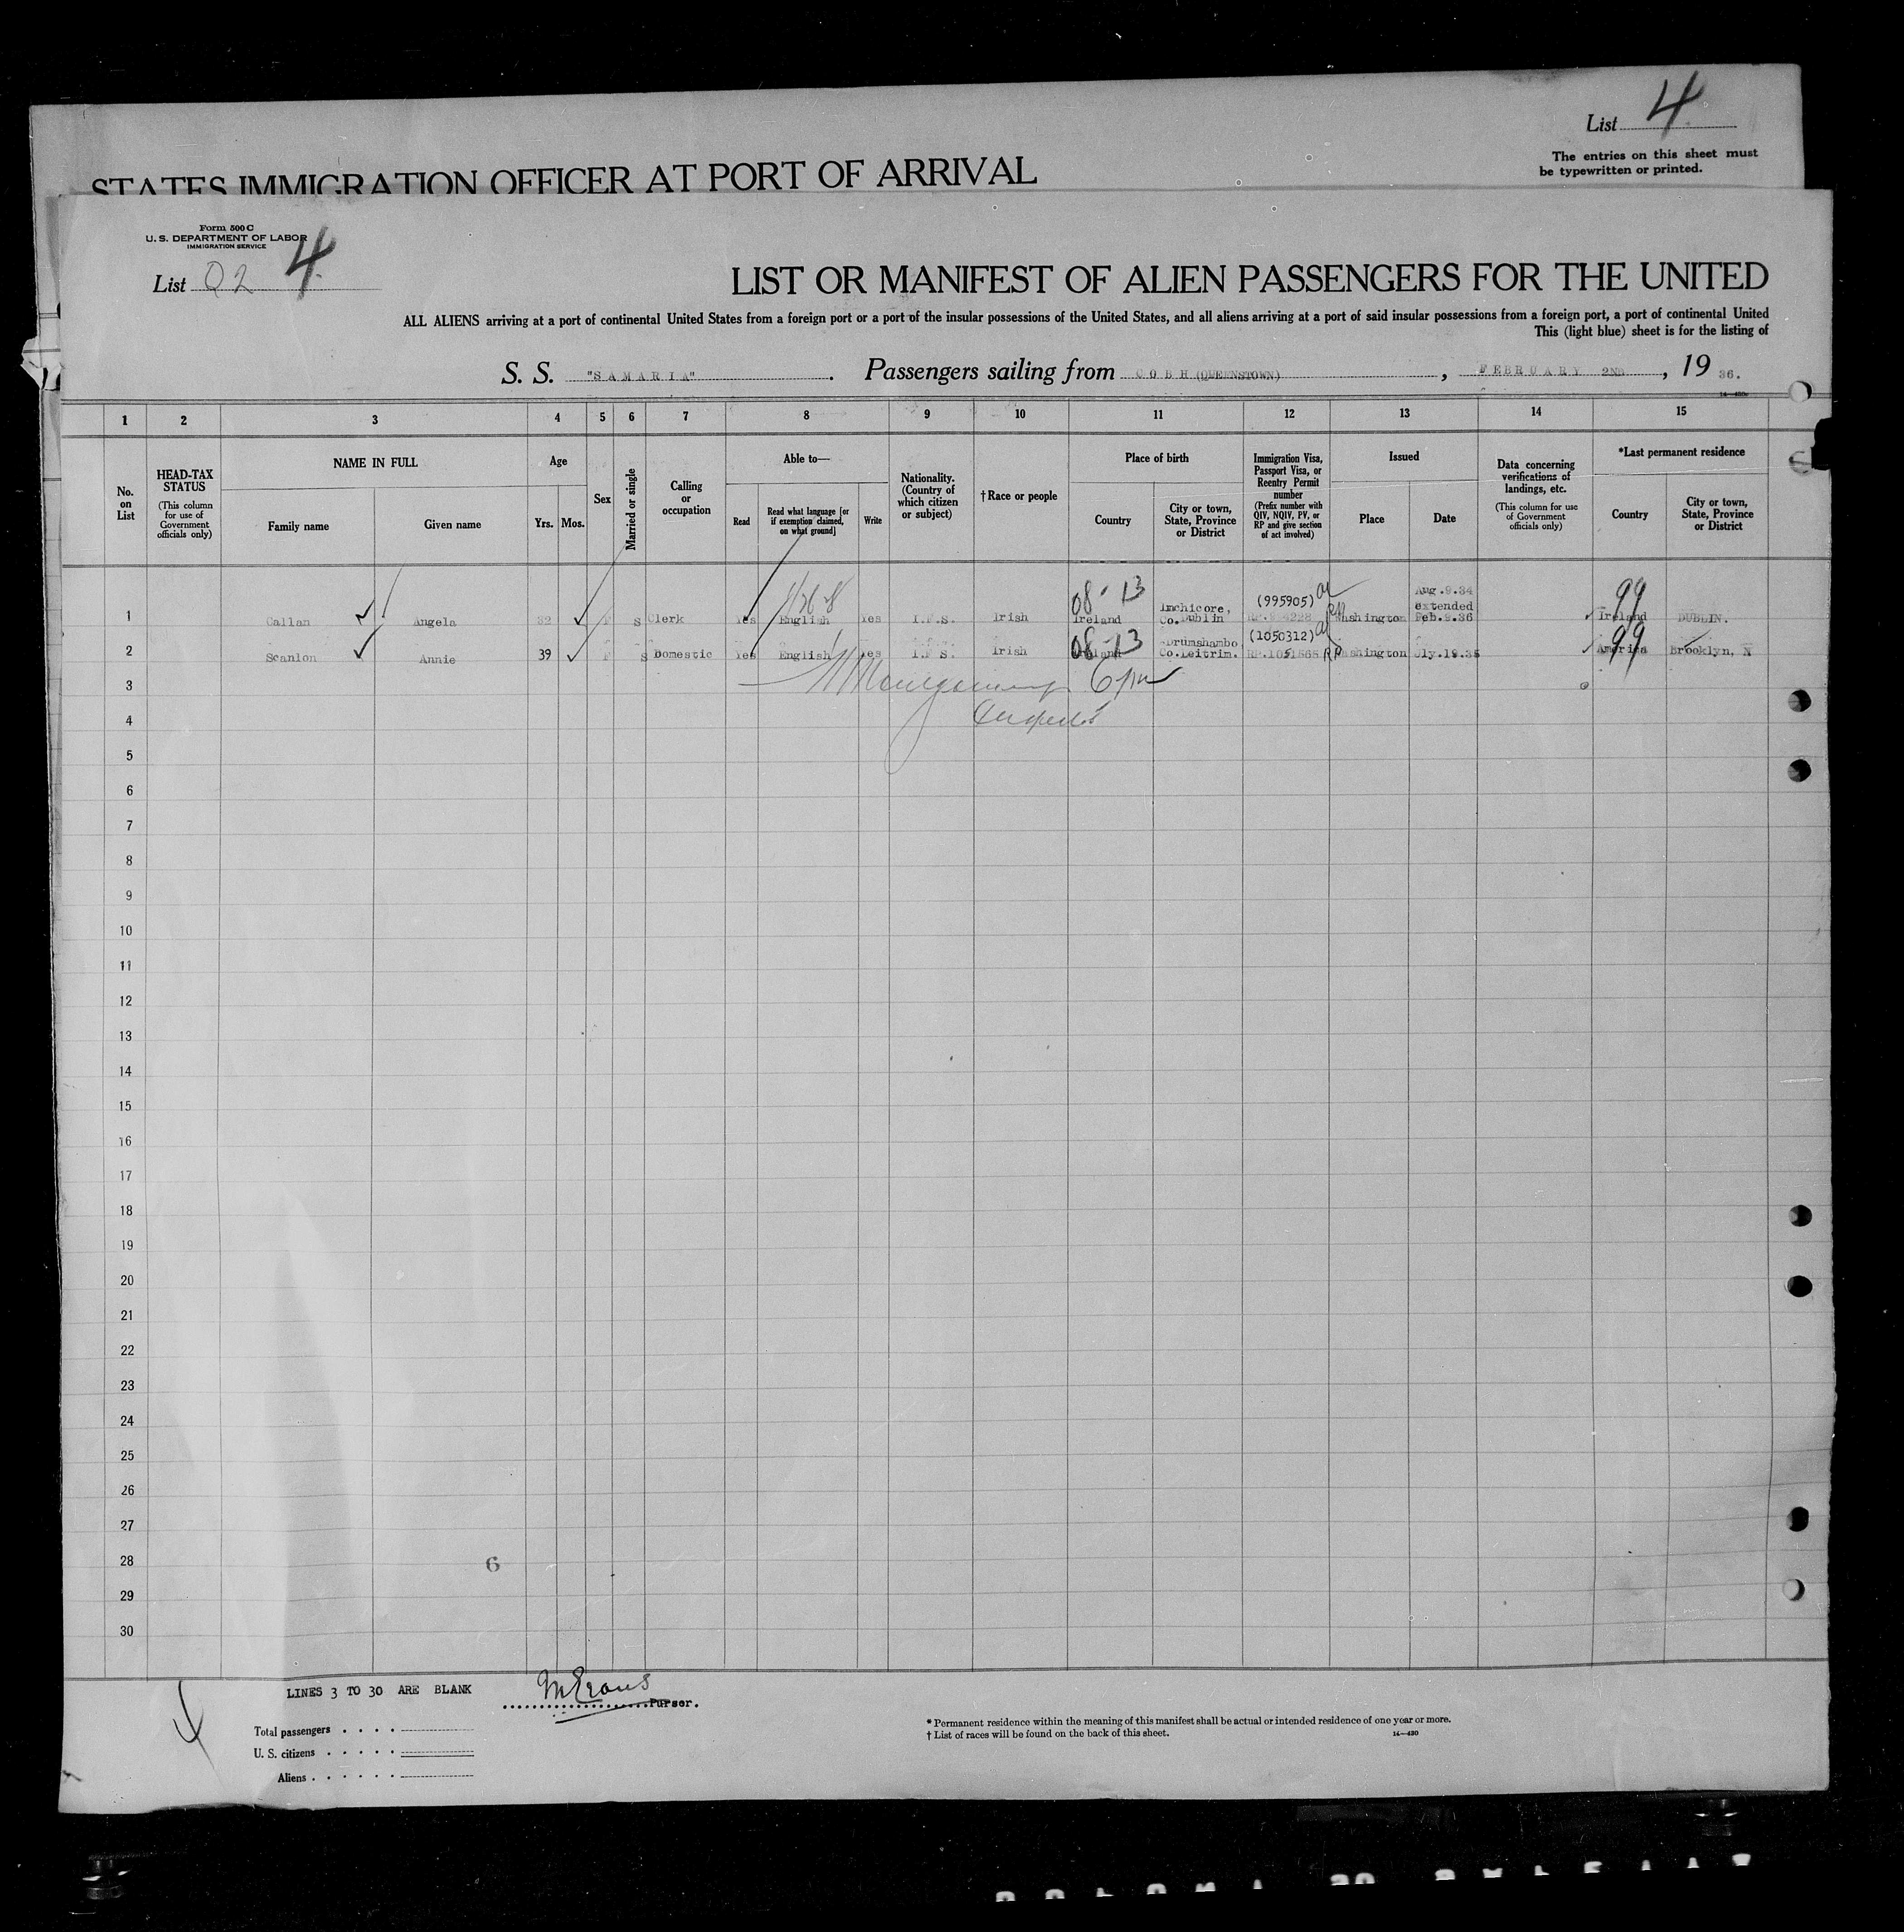 List 4
The entries on this sheet must
be typewritten or printed.
STATES IMMIGRATION OFFICER AT PORT OF ARRIVAL
Form 500 C
U. S. DEPARTMENT OF LABOR
IMMIGRATION SERVICE
List Q2 4
LIST OR MANIFEST OF ALIEN PASSENGERS FOR THE UNITED
ALL ALIENS arriving at a port of continental United States from a foreign port or a port of the insular possessions of the United States, and all aliens arriving at a port of said insular possessions from a foreign port, a port of continental United
This (light blue) sheet is for the listing of
S. S. "SAMARIA". Passengers sailing from COBH (QUEENSTOWN), FEBRUARY 2ND, 19 36.
14—430
1 2 3 4 5 6 7 8 9 10 11 12 13 14 15
No. on List
HEAD-TAX STATUS (This column for use of Government officials only)
NAME IN FULL
Family name Given name
Age
Yrs. Mos.
Sex
Married or single
Calling or occupation
Able to—
Read
Read what language [or if exemption claimed, on what ground]
Write
Nationality. (Country of which citizen or subject)
† Race or people
Place of birth
Country
City or town, State, Province or District
Immigration Visa, Passport Visa, or Reentry Permit number (Prefix number with QIV, NQIV, PV, or RP and give section of act involved)
Issued
Place Date
Data concerning verifications of landings, etc. (This column for use of Government officials only)
*Last permanent residence
Country
City or town, State, Province or District
08-13 (995905) Aug.9.34 extended 99
1 Callan Angela 32 F S Clerk Yes English Yes I.F.S. Irish Ireland Inchicore, Co. Dublin RP Washington Feb.9.36 Ireland DUBLIN.
08-13 (1050312) 99
2 Scanlon Annie 39 F S Domestic Yes English Yes I.F.S. Irish Ireland Drumshambo Co.Leitrim. RP Washington Jly.19.35 America Brooklyn, N
3 Montgomery 6 pm
4 Inspector
5
6
7
8
9
10
11
12
13
14
15
16
17
18
19
20
21
22
23
24
25
26
27
28 6
29
30
LINES 3 TO 30 ARE BLANK
M Evans Purser.
Total passengers
U. S. citizens
Aliens
* Permanent residence within the meaning of this manifest shall be actual or intended residence of one year or more.
† List of races will be found on the back of this sheet.
14—430